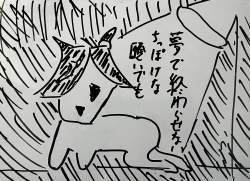 夢で終わらせな
ちっぽけな
いでも